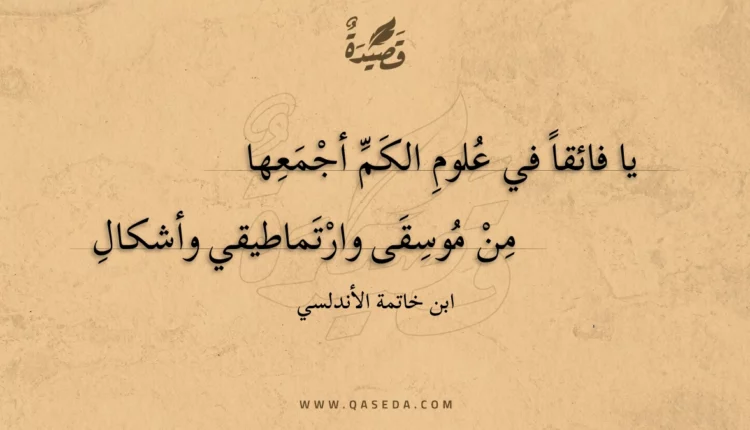 قَصِيْدَةٌ
يا فائقاً في عُلومِ الكَمِّ أجْمَعِها
مِنْ مُوسِقَى وارْتَماطيقي وأشكالِ
ابن خاتمة الأندلسي
WWW.QASEDA.COM